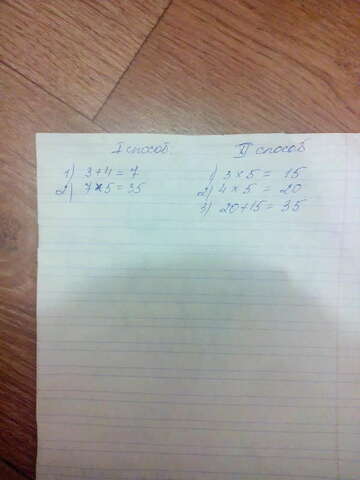 I способ.
1) 3+4=7
2) 7×5=35
II способ
1) 3×5= 15
2) 4×5= 20
3) 20+15=35